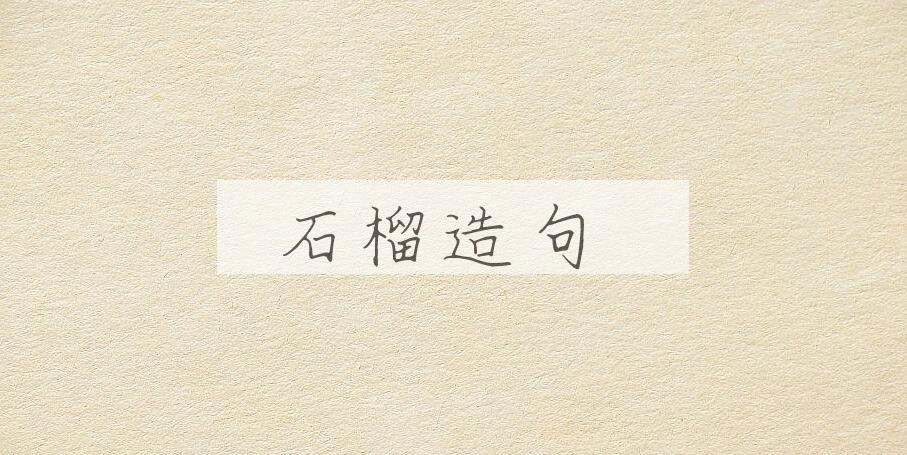 石榴造句